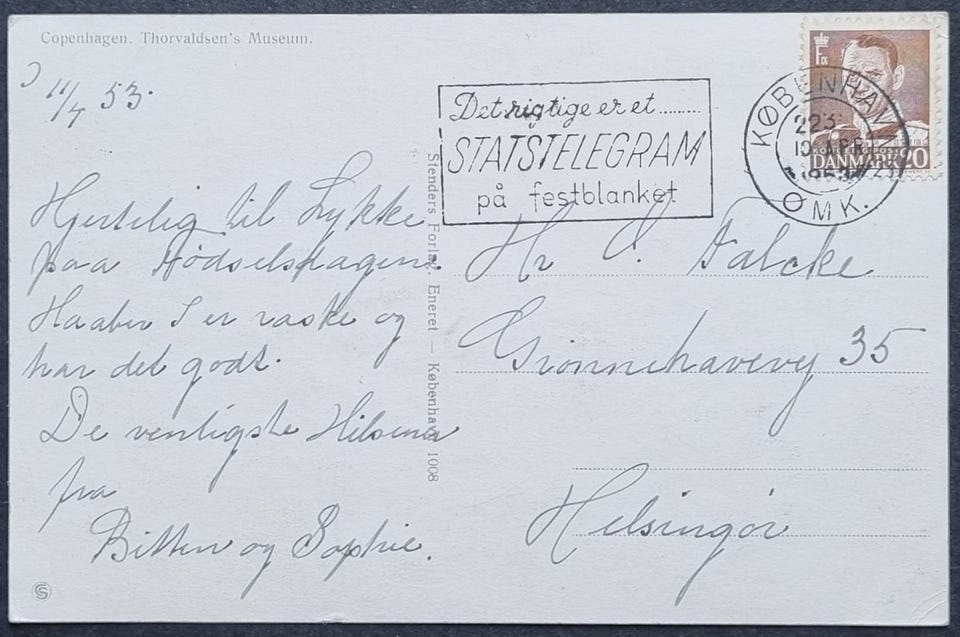 Copenhagen. Thorvaldsen's Museum.
11/4 53.
Hjertelig til Lykke
paa Fødselsdagen.
Haaber I er raske og
har det godt.
De venligste Hilsener
fra
Bitten og Sophie.
Stenders Forlag. Eneret — København 1008
Det rigtige er et..........
STATSTELEGRAM
på festblanket
KØBENHAVN
223
10 APR
1953
OMK.
DANMARK 20
Hr Falcke
Grønnehavevej 35
Helsingør